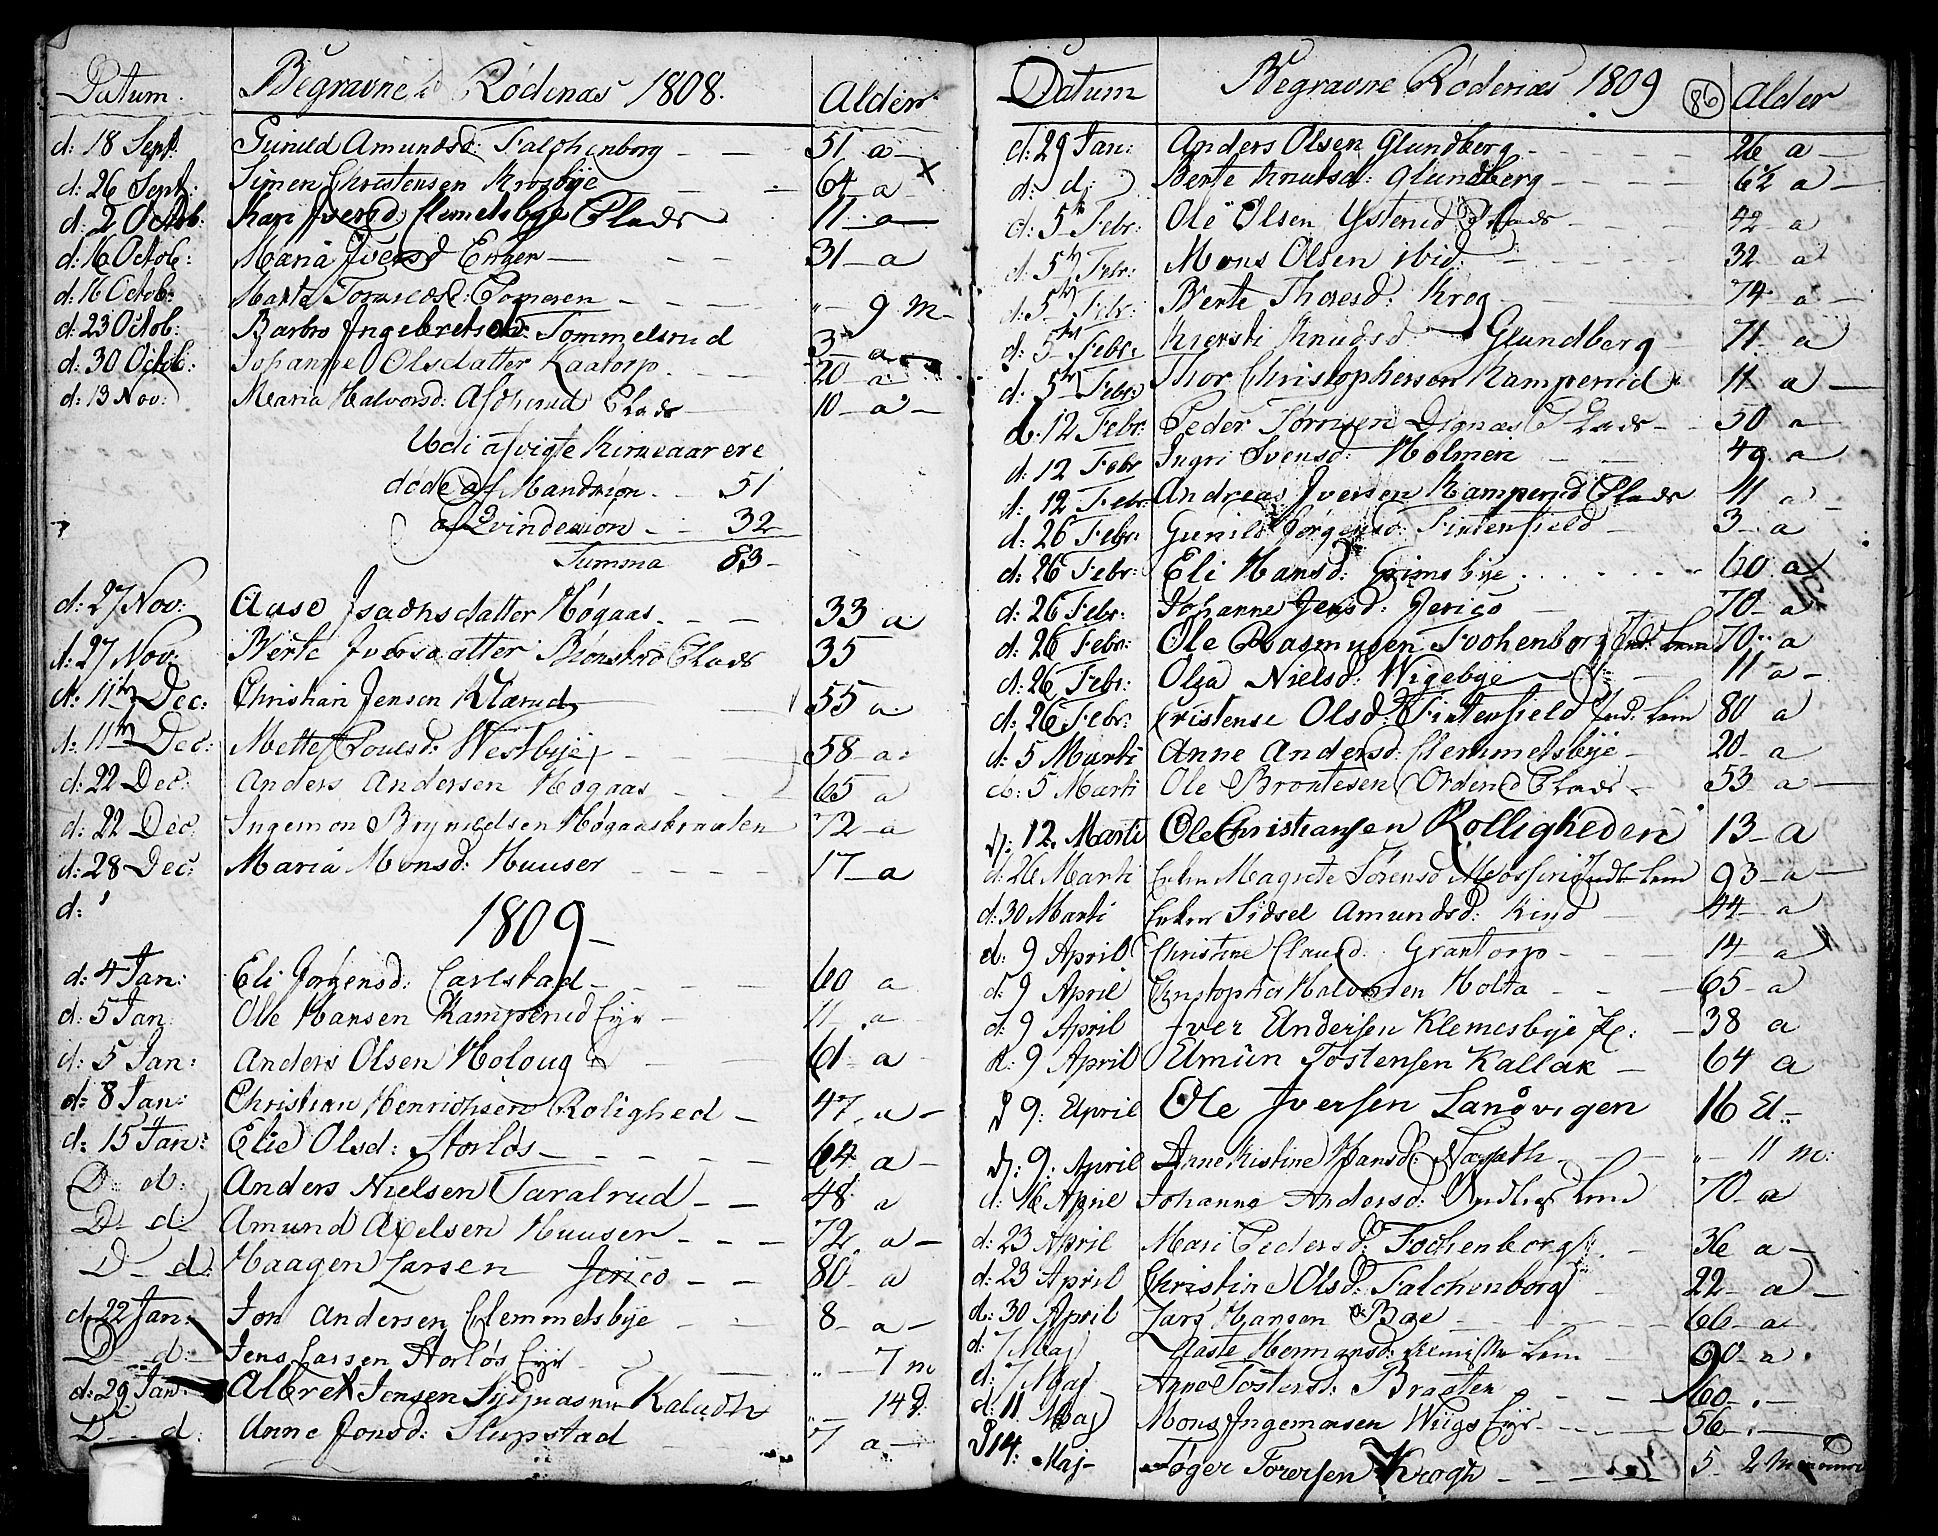 Datum. Begravne i Rødenæs 1808. Alder
d: 18 Sept: Gunild Amundsd: Falchenborg - - 51 a -
d: 26 Sept: Simen Christensen Krogbÿe - - 64 a x
d: 2 Octob: Kari Iversd: Clemetsbye Plads 11 - a -
d: 16 Octob: Maria Iversd Engen - - - 31 - a
d: 16 Octob: Marte - - - " - 9 m -
d: 23 Octob: Barbro Ingebretsdr: Tommelsrud 3 - a
d: 30 Octob: Johanne Olsdatter Kaatorp. - - 20 - a
d: 13 Nov: Maria Halvorsd: Plads - 10 - a -
Udi afvigte Kirkeaar ere
døde af Mandkiøn. - - 51
af Qvindekiøn - - 32 -
Summa 83 -
d: 27 Nov: Aase Isachsdatter Høgaas. - - 33 a
d: 27 Nov: Berte Iversdatter Plads 35
d: 11th Dec: Christian Jensen Klærud - - 55 a
d: 11th Dec: Mette Poulsd: Westbÿe - - - 58 - a:
d: 22 Dec: Anders Andersen Høgaas - - - 65 a
d: 22 Dec: Ingemon Brynildsen Høgaasbraaten 72 - a
d: 28 Dec: Maria Monsd: Huuser - - - - 17 - a
d:
1809 -
d: 4 Jan: Eli Jørgensd: Carlstad - - - - 60 a
d: 5 Jan Ole Hansen Kamperud Eje - 11 - a
d: 5 Jan: Anders Olsen Holoug - - 61 - a
d: 8 Jan: Christian Henrichsen Rolighed - 47. a -
d: 15 Jan: Elie Olsd: Storløs - - - - - 64. a -
D - d: Anders Nielsen Taralrud - - 48 a
D - d: Amund Axelsen Huuser - - - 72. a -
D - d: Haagen Larsen Jerico - - 80 - a
d: 22 Jan: Jon Andersen Clemmetsbÿe - - 8 - a -
D - d: Jens Larsen Storløs Eje - - " - 7 m
d: 29 Jan: Albret Jensen Kaludh " - 14 d.
D - d: Anne Jonsd: Slupstad - - 7 a -
Datum Begravne Rødenæs 1809 86 Alder
d: 29 Jan: Anders Olsen Glundberg - - - - - 26 a -
d: d: Berte Knutsd: Glundberg - - - - 62 a -
d: 5th Febr: Ole Olsen Ysterud Plads - - - 42 - a
d: 5th Febr: Mons Olsen ibid: - - - - - 32 a
d: 5th Febr: Berte Thoresd: Krog - - - 74 - a -
d: 5th Febr: Kiersti Knudsd: Glundberg 71. a
d: 5th Febr: Thor Christophersen Kamperud 11 a -
d: 12 Febr: Peder Plads - - 50 a -
d: 12 Febr Ingri Svensd: Holmen - - - 49 a
d: 12 Febr Andreas Iversen Kamperud Plads 11 a -
d: 26 Febr: Gunild Jørgensd: - 3 - a
d: 26 Febr: Eli Hansd: Grimsbÿe. - - - - 60 a
d: 26 Febr: Johanne Jensd: Jerico - 70 - a
d: 26 Febr: Ole Rasmusen Fochenborg Ind: Lem 70 " a
d: 26 Febr: Olea Nielsd: Wigebÿe - - 11 a -
d: 26 Febr: Cristense Olsd: Ind: Lem 80 a
d: 5 Marti Anne Andersd: Clemmetsbÿe - 20 - a
d: 5 Marti Ole Brontesen Plads - 53 - a -
d: 12. Marti Ole Christiansen Rolligheden 13 - a
d: 26 Marti Enken Magrete Sørensd Lem 93 - a -
d: 30 Marti Enken Sidsel Amundsd: Kind - 44 - a
d: 9 April Christine Clausd: Grantorp - - - 14 - a
d: 9 April Christopher Halvorsen Holta - - - 65 - a
d: 9 April Iver Andersen Klemesbÿe - 38 a
d: 9 April Elmün Tostensen Kallak - 64 a
d 9: April Ole Iversen Langvigen 16 A -
d: 9: April Anne Kistine Hansd: Nasath - - - " 11 m:
d: 16 April Johanne Andersd: Lem 70 - a
d: 23 April Mari Pedersd: Fochenborg - 36 a -
d: 23 April Christine Olsd: Falchenborg - 22 - a -
d: 30 April Lars Hansen Bøe - - - - - 66 - a -
d: 7 Maj Aaste Hermansd: Lem - 90 - a.
d: 7 Maj Anne Tostensd: Braaten - - - 60 - . -
d: 11 Maj Mons Ingemonsen Wiigs Eje - - - 56 - . -
d 14: Maj - Toger Torersen Krogh - - - - 5 - 2